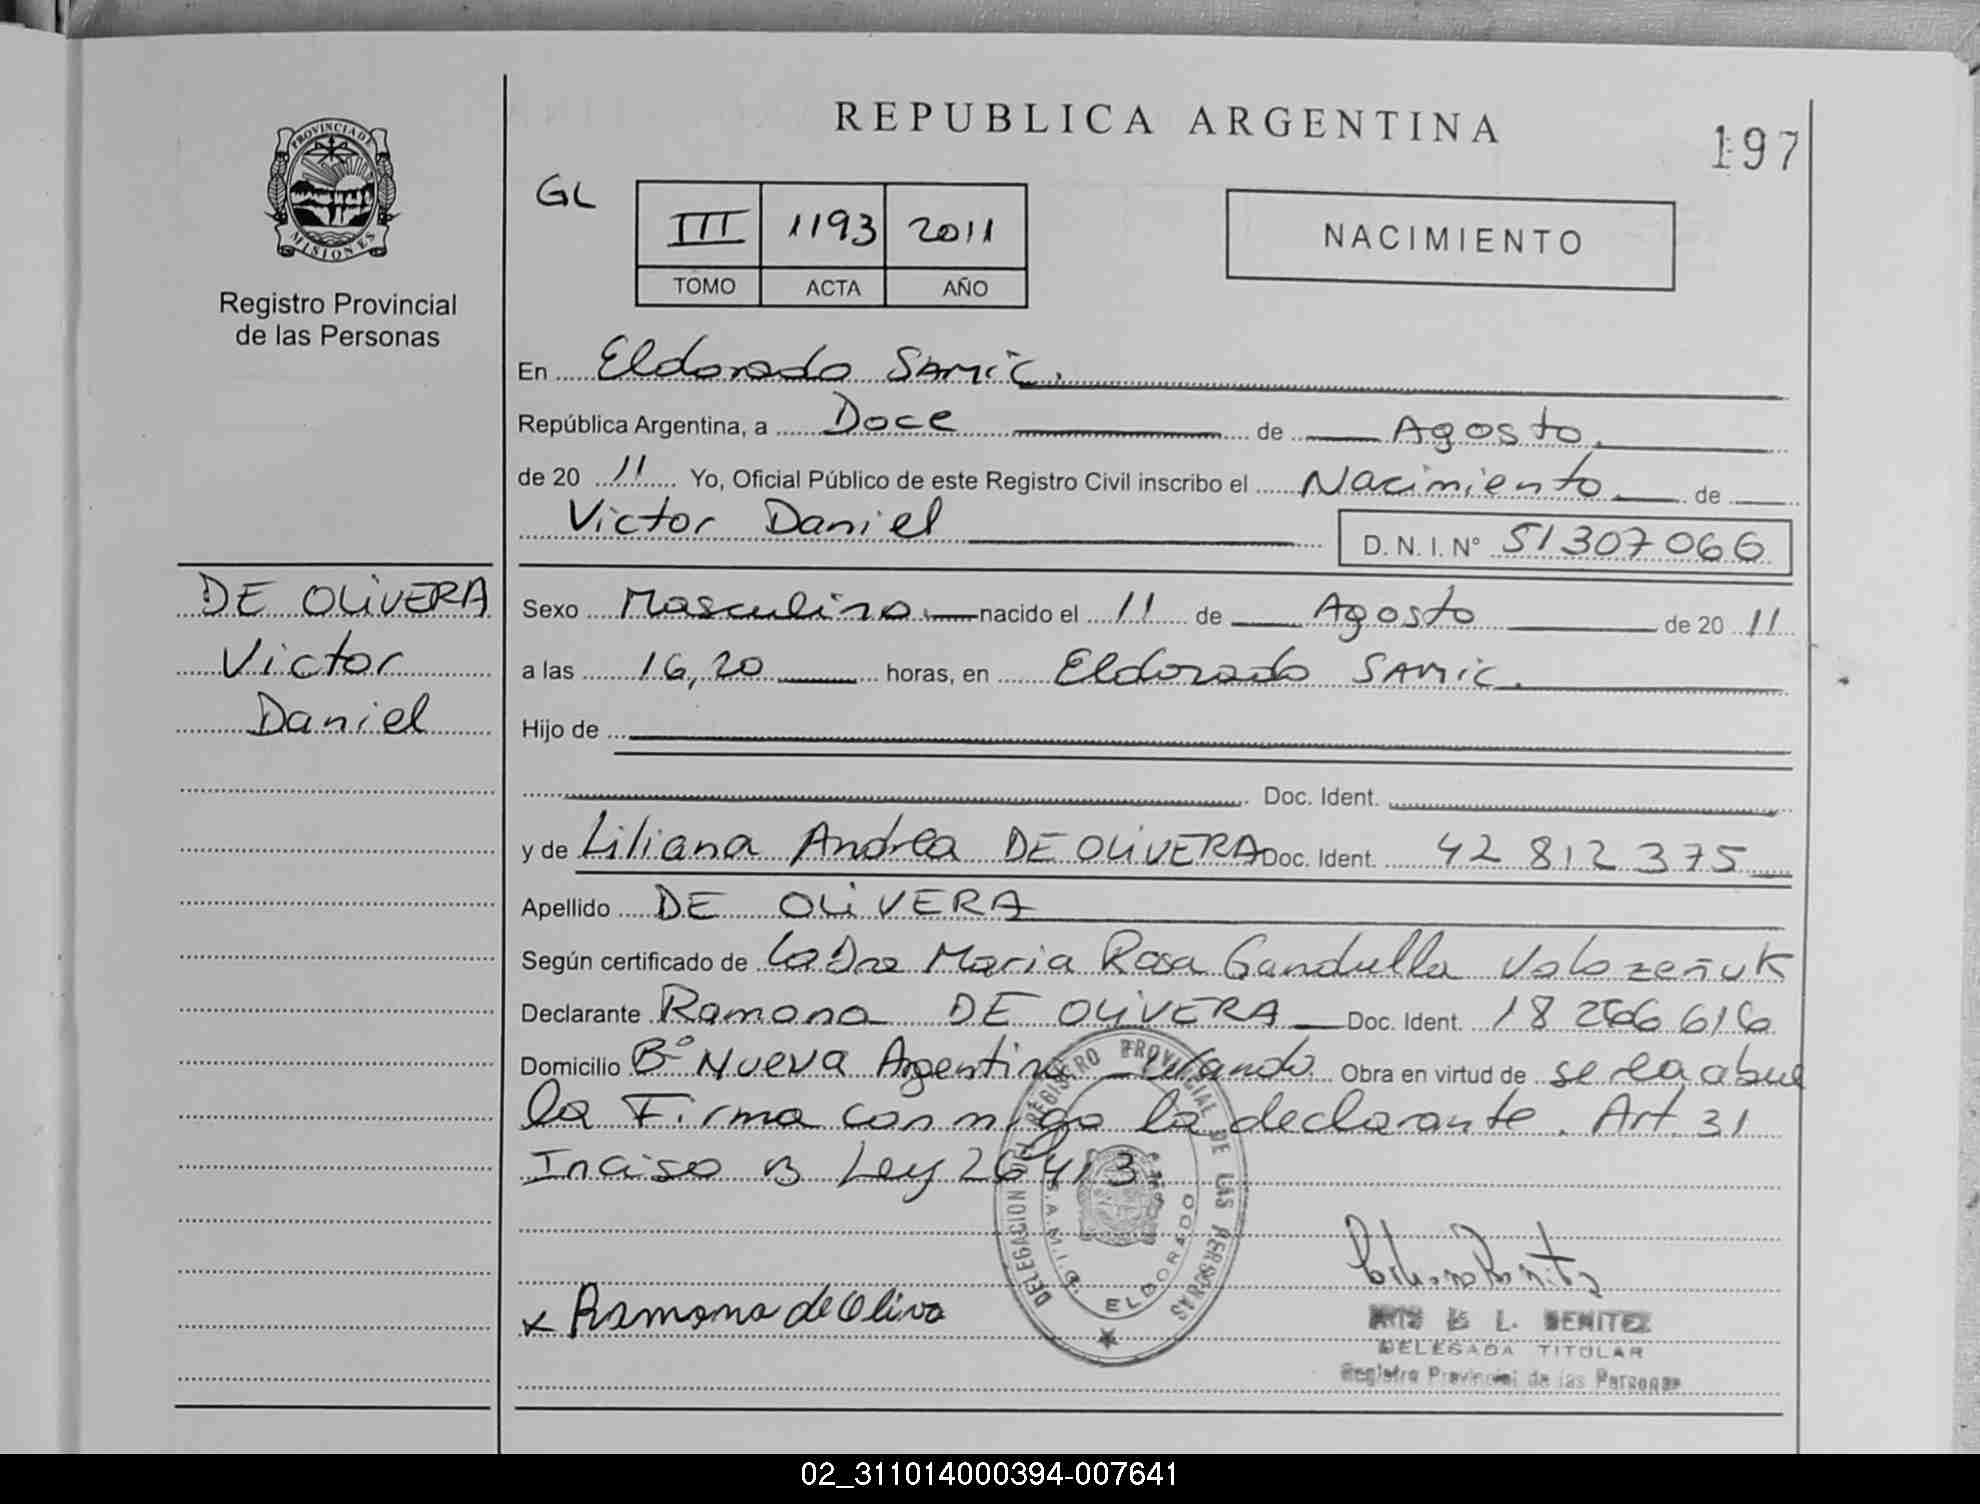 REPUBLICA ARGENTINA
197
PROVINCIA DE
MISIONES
Registro Provincial
de las Personas
GL
III 1193 2011
TOMO ACTA AÑO
NACIMIENTO
En Eldorado SAMiC.
República Argentina, a Doce de Agosto.
de 20 11 Yo, Oficial Público de este Registro Civil inscribo el Nacimiento de
Victor Daniel
D. N. I. Nº 51307066
DE OLiVERA
Victor
Daniel
Sexo Masculino nacido el 11 de Agosto de 20 11
a las 16,20 horas, en Eldorado SAMiC.
Hijo de
Doc. Ident.
y de Liliana Andrea DE OLiVERA Doc. Ident. 42 812 375
Apellido DE OLiVERA
Según certificado de La Dra Maria Rosa Gandulla
Declarante Ramona DE OLiVERA Doc. Ident. 18 266 616
Domicilio Bº Nueva Argentina Obra en virtud de se la abue
la Firma conmigo la declarante. Art. 31
Inciso B Ley 26413
DELEGACION DEL REGISTRO PROVINCIAL DE LAS PERSONAS
S.A.M.I.C. ELDORADO
x Ramona de Oliva
L. BENITEZ
DELEGADA TITULAR
Registro Provincial de las Personas
02_311014000394-007641